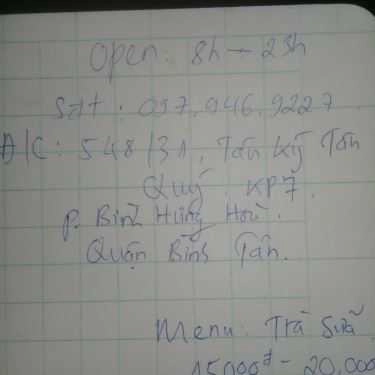 Open: 8h – 23h
Sđt: 097.946.9227
Đ/C: 548/31, Tân Kỳ Tân
Quý. KP7.
P. Bình Hưng Hoà.
Quận Bình Tân.
Menu: Trà Sữa
15000đ – 20.000